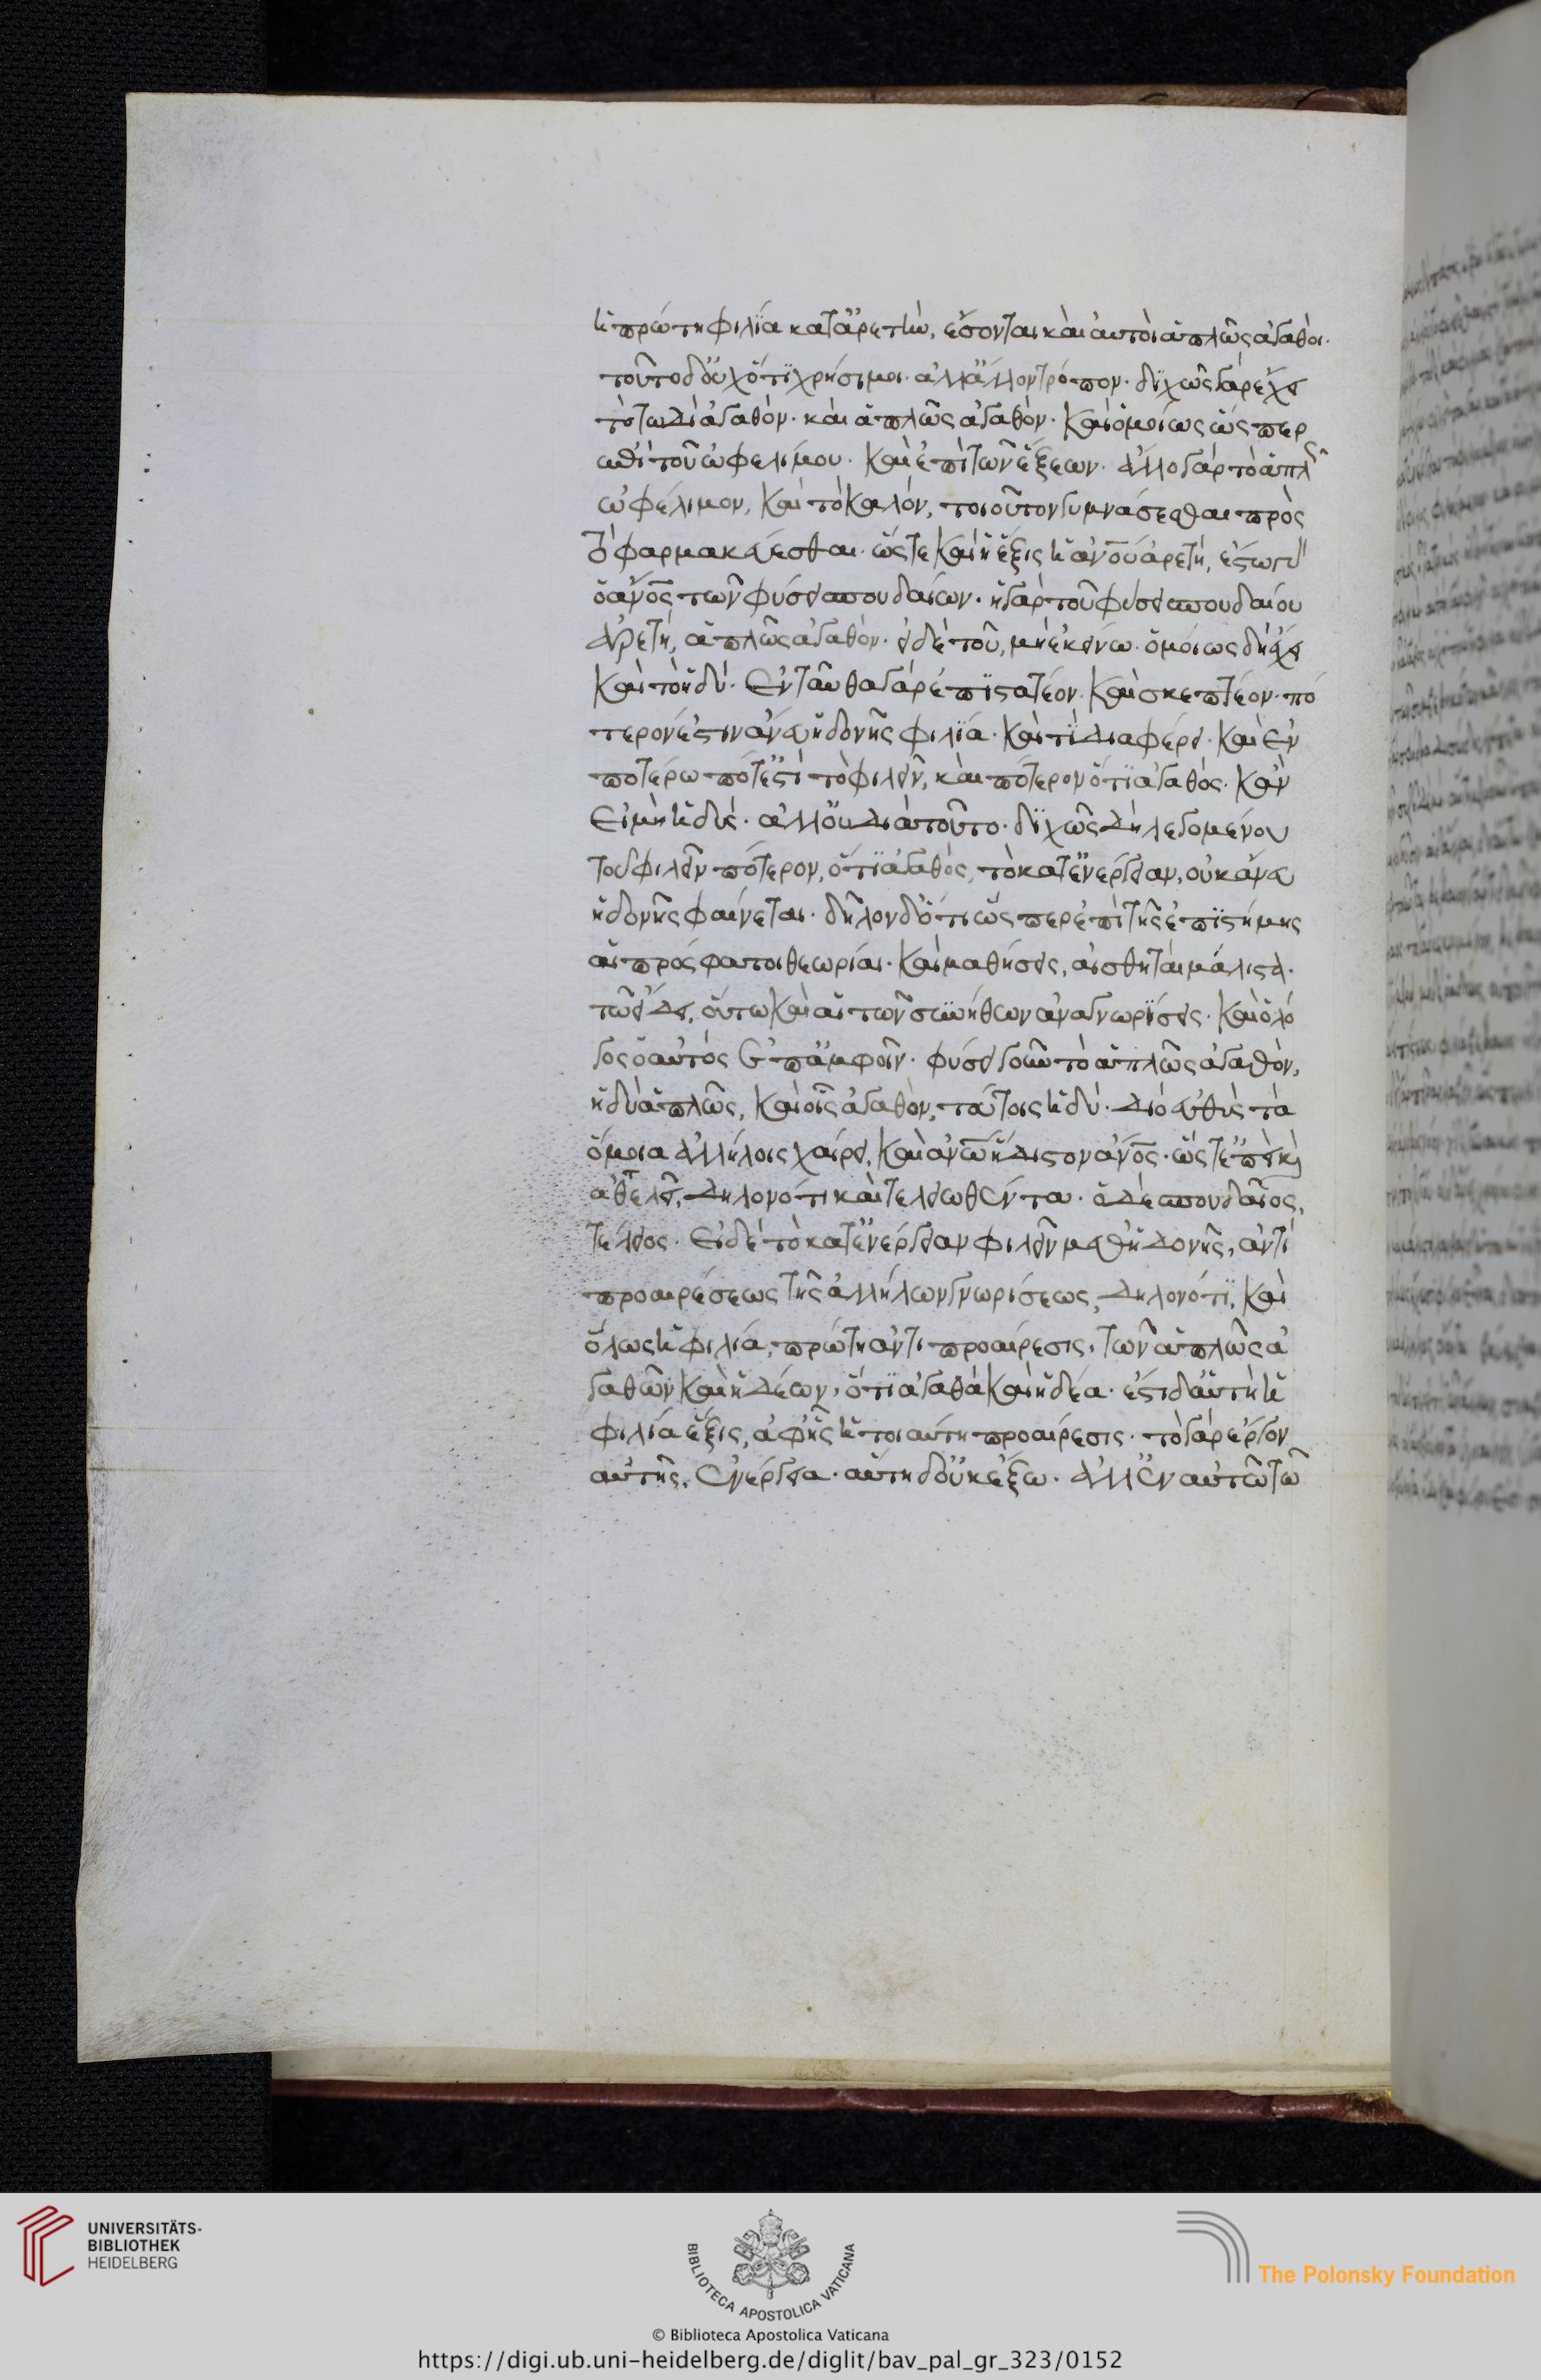 ἡ πρώτη φιλία κατ' ἀρετὴν, ἔσονται καὶ αὐτοὶ ἁπλῶς ἀγαθοί·
τοῦτο δ' οὐχ' ὅτι χρήσιμοι· ἀλλ' ἄλλον τρόπον· διχῶς γὰρ ἔχει
τὸ τωδὶ ἀγαθὸν· καὶ ἁπλῶς ἀγαθὸν· καὶ ὁμοίως ὥς περ
ἐπὶ τοῦ ὠφελίμου· καὶ ἐπὶ τῶν ἕξεων· ἄλλο γὰρ τὸ ἁπλῶς
ὠφέλιμον, καὶ τὸ καλόν, τοιοῦτον γυμνάζεσθαι πρὸς
τὸ φαρμακεύεσθαι· ὥς τε καὶ ἡ ἕξις ἡ ἀνου ἀρετή, ἔστω γὰρ
ὁ ἄνος τῶν φύσει σπουδαίων· ἡ γὰρ τοῦ φύσει σπουδαίου
ἀρετή, ἁπλῶς ἀγαθόν· ἡ δὲ τοῦ, μὴ ἐκείνω· ὁμοίως δὴ ἔχει
καὶ τὸ ἡδύ· ἐνταῦθα γὰρ ἐπιστατέον· καὶ σκεπτέον· πό
τερον ἐστιν ἄνευ ἡδονῆς φιλία· καὶ τί διαφέρει· καὶ ἐν
ποτέρω πότ' ἐστὶ τὸ φιλεῖν, καὶ πότερον ὅτι ἀγαθός· κἂν
εἰ μὴ ἡδύς· ἀλλ' οὐ διὰ τοῦτο· διχῶς δὴ λεγομένου
τοῦ φιλεῖν πότερον, ὅτι ἀγαθὸς, τὸ κατ' ἐνέργειαν, οὐκ ἄνευ
ἡδονῆς φαίνεται· δῆλον δ' ὅτι ὥς περ ἐπὶ τῆς ἐπιστήμης
αἱ πρόσφατοι θεωρίαι· καὶ μαθήσεις, αἰσθηταὶ μάλιστα·
τῶ ἡδεῖ, οὕτω καὶ αἱ τῶν συνήθων ἀναγνωρίσεις· καὶ ὁ λό
γος ὁ αὐτός ἐπ' ἀμφοῖν· φύσει γοῦν τὸ ἁπλῶς ἀγαθὸν,
ἡδὺ ἁπλῶς, καὶ οἷς ἀγαθὸν, τούτοις ἡδύ· διὸ εὐθὺς τὰ
ὅμοια ἀλλήλοις χαίρει, καὶ ἀνω ἥδιστον ἄνος· ὥς τ' ἐπεὶ καὶ
ἀτελῆ, δηλονότι καὶ τελειωθέντα· ὁ δὲ σπουδαῖος,
τέλειος· εἰ δὲ τὸ κατ' ἐνέργειαν φιλεῖν μεθ' ἡδονῆς, ἀντι
προαιρέσεως τῆς ἀλλήλων γνωρίσεως, δηλονότι, καὶ
ὅλως ἡ φιλία, πρώτη ἀντιπροαίρεσις, τῶν ἁπλῶς ἀ
γαθῶν καὶ ἡδέων, ὅτι ἀγαθὰ καὶ ἡδέα· ἔστι δ' αὐτὴ ἡ
φιλία ἕξις, ἀφ' ἧς ἡ τοιαύτη προαίρεσις· τὸ γὰρ ἔργον
αὐτῆς, ἐνέργεια· αὕτη δ' οὐκ ἔξω· ἀλλ' ἐν αὐτῶ τῶ
UNIVERSITÄTS-
BIBLIOTHEK
HEIDELBERG
BIBLIOTECA APOSTOLICA VATICANA
The Polonsky Foundation
© Biblioteca Apostolica Vaticana
https://digi.ub.uni-heidelberg.de/diglit/bav_pal_gr_323/0152